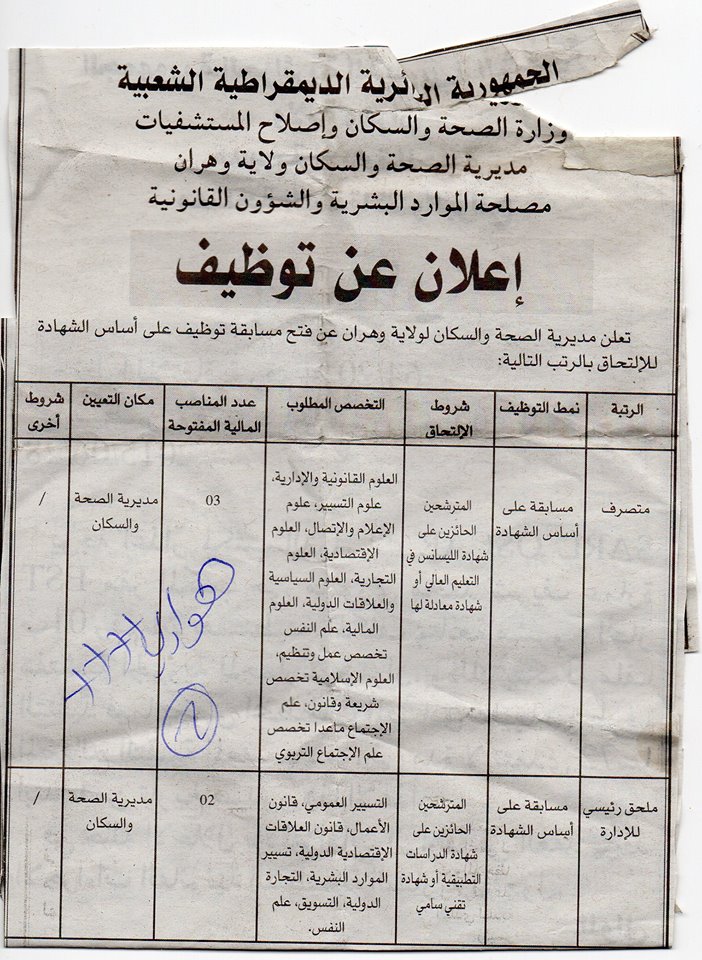 الجمهورية الجزائرية الديمقراطية الشعبية
وزارة الصحة والسكان وإصلاح المستشفيات
مديرية الصحة والسكان ولاية وهران
مصلحة الموارد البشرية والشؤون القانونية
إعلان عن توظيف
تعلن مديرية الصحة والسكان لولاية وهران عن فتح مسابقة توظيف على أساس الشهادة
للإلتحاق بالرتب التالية:
الرتبة
نمط التوظيف
شروط
الإلتحاق
التخصص المطلوب
عدد المناصب
المالية المفتوحة
مكان التعيين
شروط
أخرى
متصرف
مسابقة على
أساس الشهادة
المترشحين
الحائزين على
شهادة الليسانس في
التعليم العالي أو
شهادة معادلة لها
العلوم القانونية والإدارية،
علوم التسيير، علوم
الإعلام والإتصال، العلوم
الإقتصادية، العلوم
التجارية، العلوم السياسية
والعلاقات الدولية، العلوم
المالية، علم النفس
تخصص عمل وتنظيم،
العلوم الإسلامية تخصص
شريعة وقانون، علم
الإجتماع ماعدا تخصص
علم الإجتماع التربوي
03
مديرية الصحة
والسكان
/
هواري+++
2
ملحق رئيسي
للإدارة
مسابقة على
أساس الشهادة
المترشحين
الحائزين على
شهادة الدراسات
التطبيقية أو شهادة
تقني سامي
التسيير العمومي، قانون
الأعمال، قانون العلاقات
الإقتصادية الدولية، تسيير
الموارد البشرية، التجارة
الدولية، التسويق، علم
النفس.
02
مديرية الصحة
والسكان
/